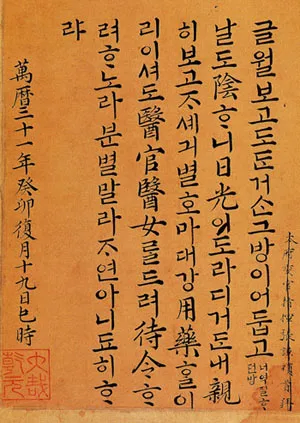 글월보고도ᄃᆞᆫ거ᄉᆞᆫ그방이어둡고
너역질ᄒᆞ
던방
날도陰ᄒᆞ니日光이도라디거든내親
히보고ᄌᆞ셰긔별호마대강用藥ᄒᆞᆯ이
리이셔도醫官醫女ᄅᆞᆯ드려待令ᄒᆞ
려ᄒᆞ노라분별말라ᄌᆞ연아니됴히ᄒᆞ
랴
萬曆三十一年癸卯復月十九日巳時